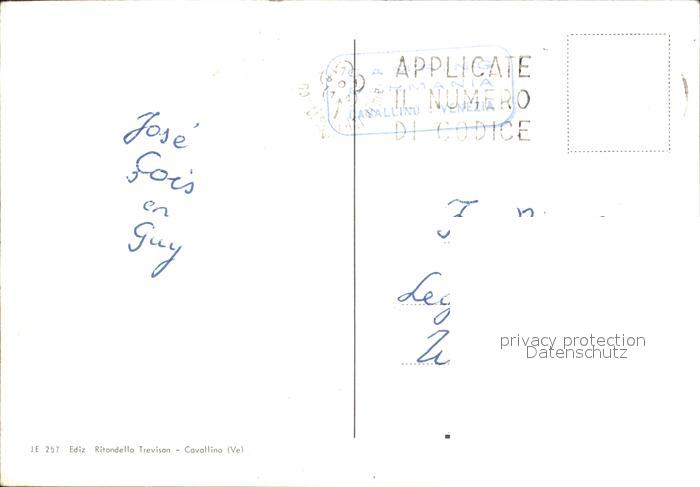 José
Lois
en
Guy
APPLICATE
IL NUMERO
DI CODICE
CAVALLINO - VENEZIA
Leg
privacy protection
Datenschutz
JE 257 Ediz Ritondello Trevisan - Cavallino (Ve)